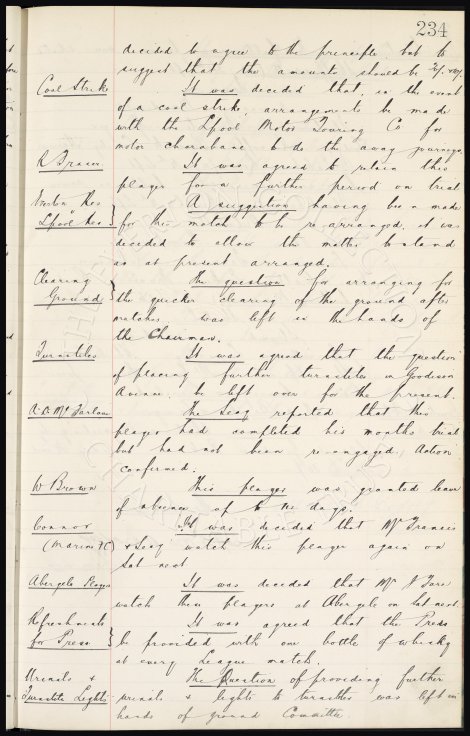 234
decided to agree to the principle but to
suggest that the amounts should be
Coal Strike It was decided that, in the event
of a coal strike, arrangements be made
with the Lpool Motor Touring Co for
motor charabanc to do the away journeys.
R Brewer It was agreed to retain this
player for a further period on trial
Everton Res v Lpool Res } A suggestion having been made
for this match to be re-arranged, it was
decided to allow the matter to stand
as at present arranged.
Clearing Ground } The question for arranging for
the quicker clearing of the ground after
matches was left in the hands of
the Chairman.
Turnstiles It was agreed that the question
of placing further turnstiles in Goodison
Avenue be left over for the present.
The Secy reported that this
player had completed his months trial
but had not been re-engaged, Action
confirmed.
W Brown This player was granted leave
of absence up to ten days.
Connor It was decided that Mr Francis
(Marine FC) & Secy watch this player again on
Sat next
Abergele Players It was decided that Mr J Fare
watch these players at Abergele on Sat next.
Refreshments for Press } It was agreed that the Press
be provided with one bottle of whisky
at every League match.
Urinals & The Question of providing further
Turnstile Lights urinals & lights to turnstiles was left in
hands of ground Committee.